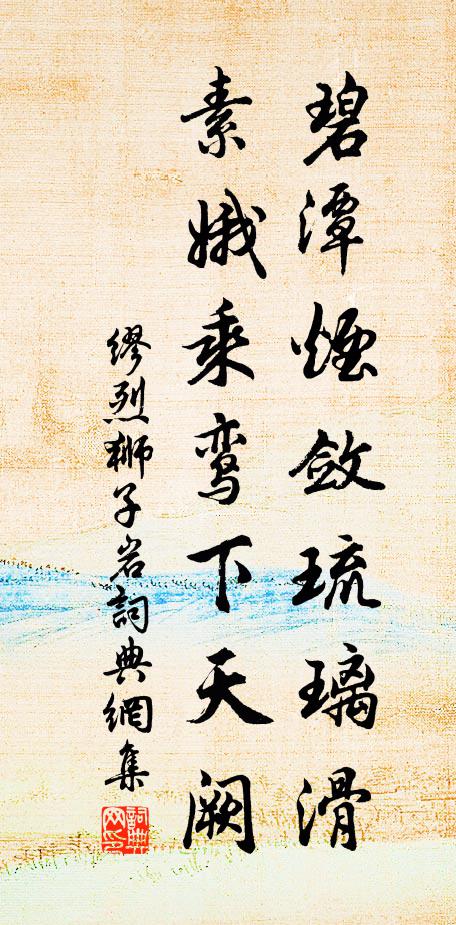 碧潭煙斂琉璃滑
素娥乘鸾下天阙
缪烈狮子岩詞典網集
詞典网印